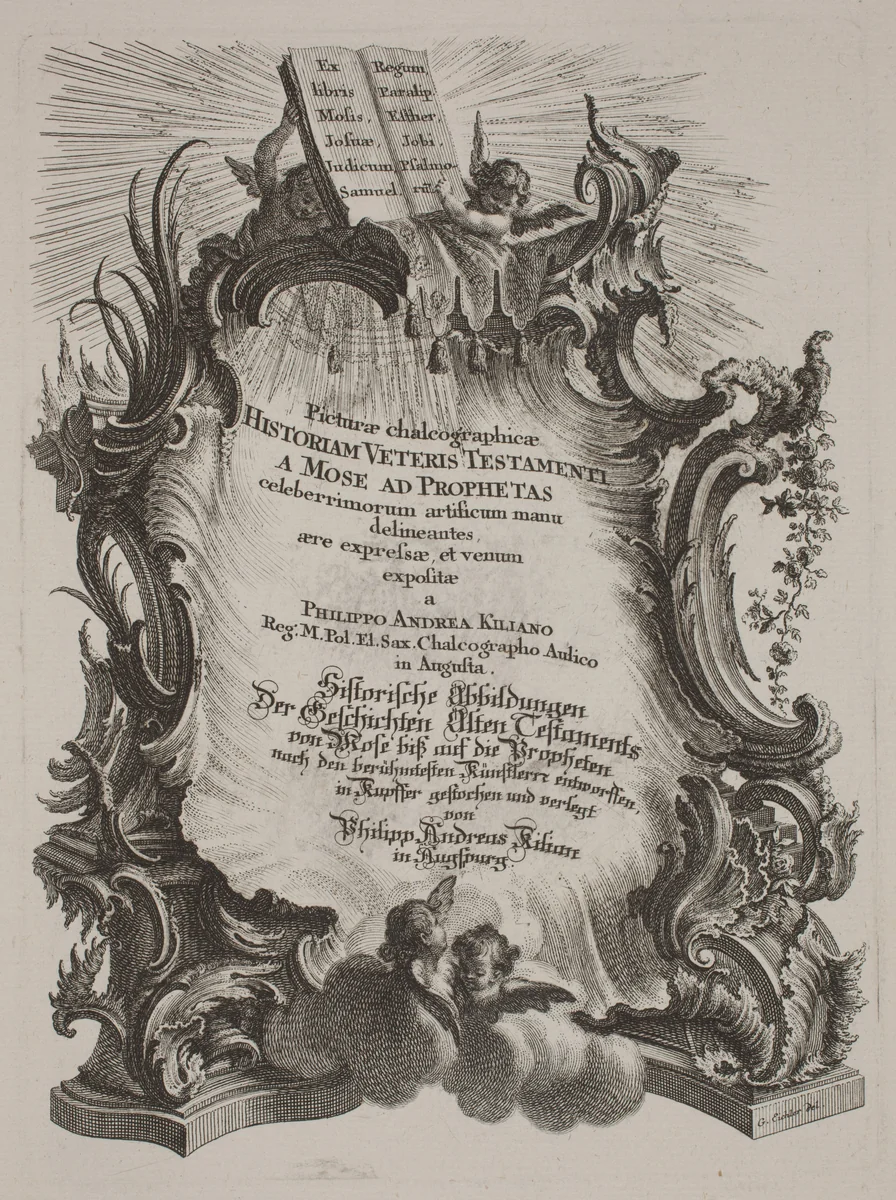 Ex
libris
Mosis,
Josuæ,
Judicum,
Samuel.
Regum,
Paralip.
Esther,
Jobi,
Psalmo-
rū.
Picturæ chalcographicæ
HISTORIAM VETERIS TESTAMENTI
A MOSE AD PROPHETAS
celeberrimorum artificum manu
delineantes,
ære expreſsæ, et venum
expoſitæ
a
PHILIPPO ANDREA KILIANO
Reg: M. Pol. El. Sax. Chalcographo Aulico
in Auguſta.
Hiſtoriſche Abbildungen
Der Geſchichten Alten Teſtaments
von Moſe biß auf die Propheten
nach den berühmteſten Künſtlern entworffen,
in Kupffer geſtochen und verlegt
von
Philipp Andreas Kilian
in Augſpurg.
G. Del.